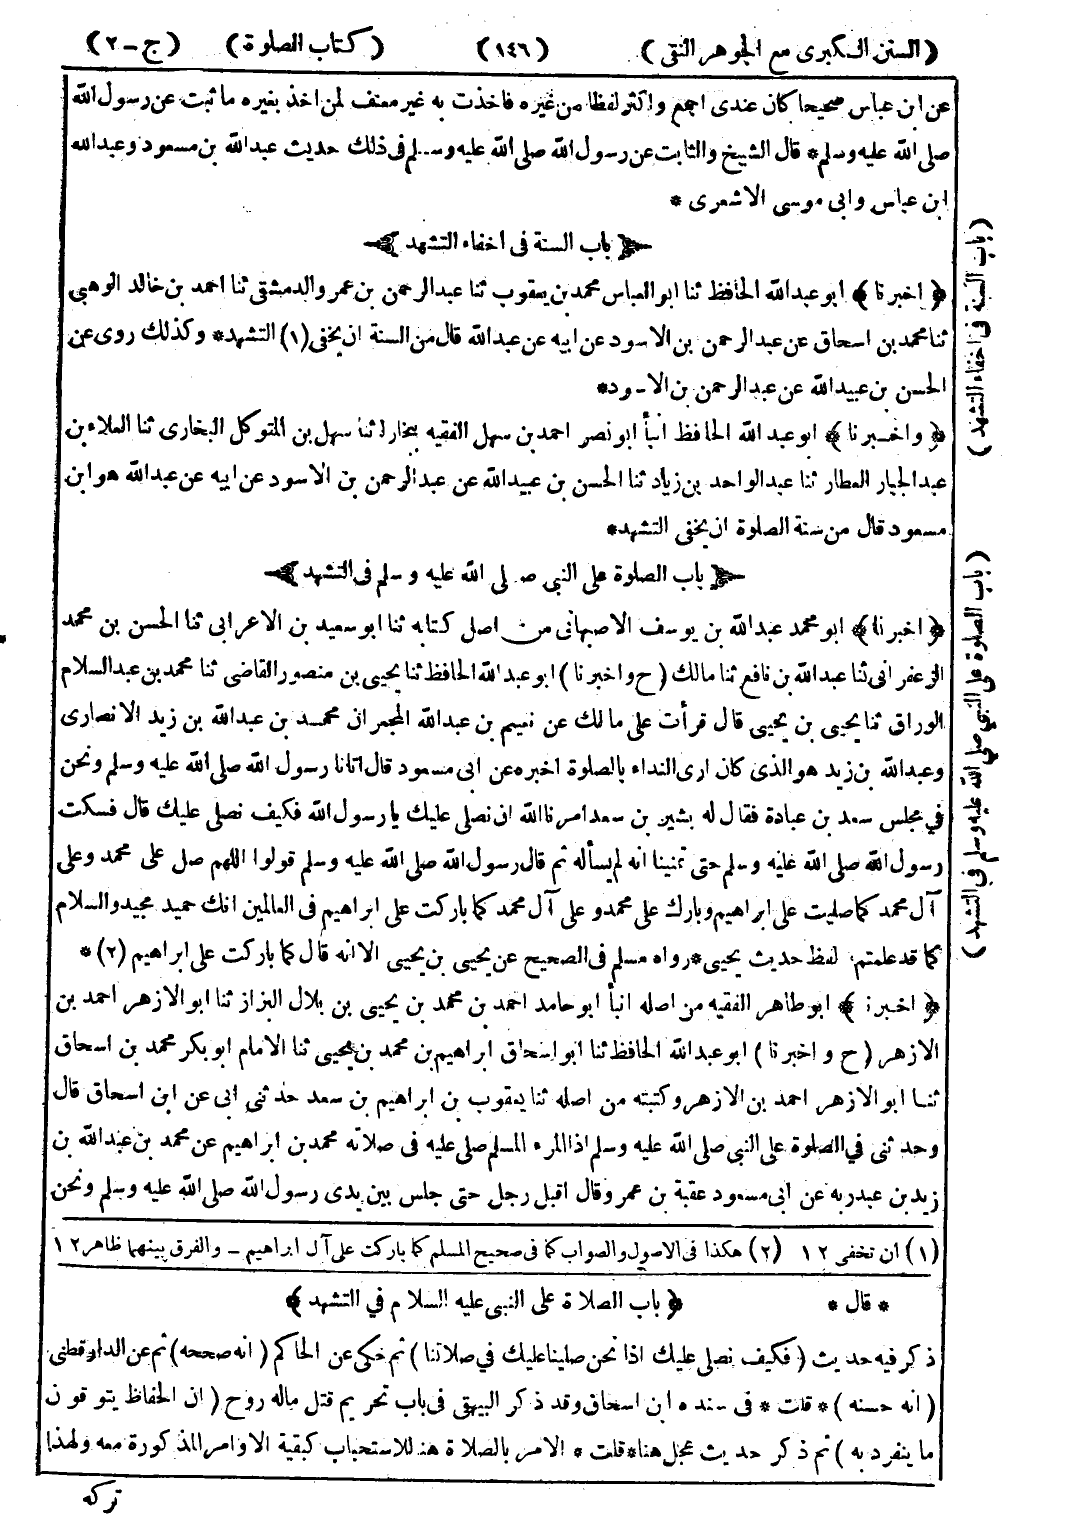 (السنن الكبرى مع الجوهر النقى) (١٤٦) (كتاب الصلوة) (ج-٢)
عن ابن عباس صحيحا كان عندى اجمع واكثر لفظا من غيره فاخذت به غير معنف لمن اخذ بغيره ما ثبت عن رسول الله
صلى الله عليه وسلم* قال الشيخ والثابت عن رسول الله صلى الله عليه وسلم فى ذلك حديث عبدالله بن مسعود وعبدالله
ابن عباس وابى موسى الاشعرى *
باب السنة فى اخفاء التشهد
﴿ اخبرنا ﴾ ابو عبدالله الحافظ ثنا ابو العباس محمد بن يعقوب ثنا عبدالرحمن بن عمرو الدمشقى ثنا احمد بن خالد الوهبى
ثنا محمد بن اسحاق عن عبدالرحمن بن الاسود عن ابيه عن عبدالله قال من السنة ان يخفى (١) التشهد* وكذلك روى عن
الحسن بن عبيدالله عن عبدالرحمن بن الاسود*
﴿ واخبرنا ﴾ ابو عبد الله الحافظ انبأ ابو نصر احمد بن سهل الفقيه ببخارا ثنا سهل بن المتوكل البخارى ثنا العلاء بن
عبدالجبار العطار ثنا عبدالواحد بن زياد ثنا الحسن بن عبيدالله عن عبدالرحمن بن الاسود عن ابيه عن عبدالله هو ابن
مسعود قال من سنة الصلوة ان يخفى التشهد*
باب الصلوة على النبى صلى الله عليه وسلم فى التشهد
﴿ اخبرنا ﴾ ابو محمد عبدالله بن يوسف الاصبهانى من اصل كتابه ثنا ابو سعيد بن الاعرابى ثنا الحسن بن محمد
الزعفرانى ثنا عبدالله بن نافع ثنا مالك (ح واخبرنا) ابو عبد الله الحافظ ثنا يحيى بن منصور القاضى ثنا محمد بن عبدالسلام
الوراق ثنا يحيى بن يحيى قال قرأت على مالك عن نعيم بن عبدالله المجمر ان محمد بن عبدالله بن زيد الانصارى
وعبدالله بن زيد هو الذى كان ارى النداء بالصلوة اخبره عن ابى مسعود قال اتانا رسول الله صلى الله عليه وسلم ونحن
فى مجلس سعد بن عبادة فقال له بشير بن سعد امرنا الله ان نصلى عليك يا رسول الله فكيف نصلى عليك قال فسكت
رسول الله صلى الله عليه وسلم حتى تمنينا انه لم يسأله ثم قال رسول الله صلى الله عليه وسلم قولوا اللهم صل على محمد وعلى
آل محمد كما صليت على ابراهيم وبارك على محمد وعلى آل محمد كما باركت على ابراهيم فى العالمين انك حميد مجيد والسلام
كما قد علمتم. لفظ حديث يحيى* رواه مسلم فى الصحيح عن يحيى بن يحيى الا انه قال كما باركت على ابراهيم (٢) *
﴿ اخبرنا ﴾ ابو طاهر الفقيه من اصله انبأ ابو حامد احمد بن محمد بن يحيى بن بلال البزاز ثنا ابو الازهر احمد بن
الازهر (ح واخبرنا) ابو عبدالله الحافظ ثنا ابو اسحاق ابراهيم بن محمد بن يحيى ثنا الامام ابو بكر محمد بن اسحاق
ثنا ابو الازهر احمد بن الازهر وكتبته من اصله ثنا يعقوب بن ابراهيم بن سعد حدثنى ابى عن ابن اسحاق قال
وحدثنى فى الصلوة على النبى صلى الله عليه وسلم اذا المرء المسلم صلى عليه فى صلاته محمد بن ابراهيم عن محمد بن عبدالله بن
زيد بن عبدربه عن ابى مسعود عقبة بن عمرو قال اقبل رجل حتى جلس بين يدى رسول الله صلى الله عليه وسلم ونحن
(١) ان تخفى ١٢ (٢) هكذا فى الاصول والصواب كما فى صحيح المسلم كما باركت على آل ابراهيم - والفرق بينهما ظاهر ١٢
* قال * ﴿ باب الصلاة على النبى عليه السلام فى التشهد ﴾
ذكر فيه حديث (فكيف نصلى عليك اذا نحن صلينا عليك فى صلاتنا) ثم حكى عن الحاكم (انه صححه) ثم عن الدارقطنى
(انه حسنه) * قلت * فى سنده ابن اسحاق وقد ذكر البيهقى فى باب تحريم قتل ماله روح (ان الحفاظ يتوقون
ما ينفرد به) ثم ذكر حديث عجل هذا* قلت * الامر بالصلاة هنا للاستحباب كبقية الاوامر المذكورة معه ولهذا
تركه
(باب السنة فى اخفاء التشهد)
(باب الصلوة على النبى صلى الله عليه وسلم فى التشهد)